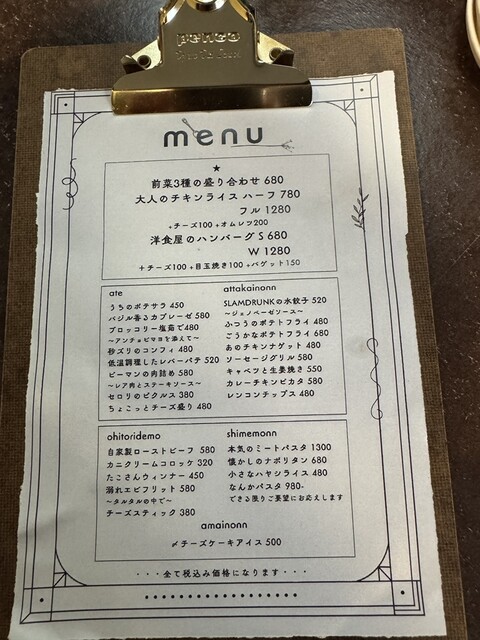 penco
menu
★
前菜3種の盛り合わせ 680
大人のチキンライス ハーフ 780
フル 1280
+チーズ100 +オムレツ200
洋食屋のハンバーグ S 680
W 1280
+チーズ100 +目玉焼き100 +バゲット150
ate
うちのポテサラ 450
バジル香るカプレーゼ 580
ブロッコリー塩茹で480
〜アンチョビマヨを添えて〜
砂ズリのコンフィ 480
低温調理したレバーパテ 520
ピーマンの肉詰め 580
〜レア肉とステーキソース〜
セロリのピクルス 380
ちょこっとチーズ盛り 480
attakainonn
SLAMDRUNKの水餃子 520
〜ジェノベーゼソース〜
ふつうのポテトフライ 480
ごうかなポテトフライ 680
あのチキンナゲット 480
ソーセージグリル 580
キャベツと生姜焼き 550
カレーチキンピカタ 580
レンコンチップス 480
ohitoridemo
自家製ローストビーフ 580
カニクリームコロッケ 320
たこさんウィンナー 450
溺れエビフリット 580
〜タルタルの中で〜
チーズスティック 380
shimemonn
本気のミートパスタ 1300
懐かしのナポリタン 680
小さなハヤシライス 480
なんかパスタ 980-
できる限りご要望にお応えします
amainonn
〆チーズケーキアイス 500
・・・全て税込み価格になります・・・